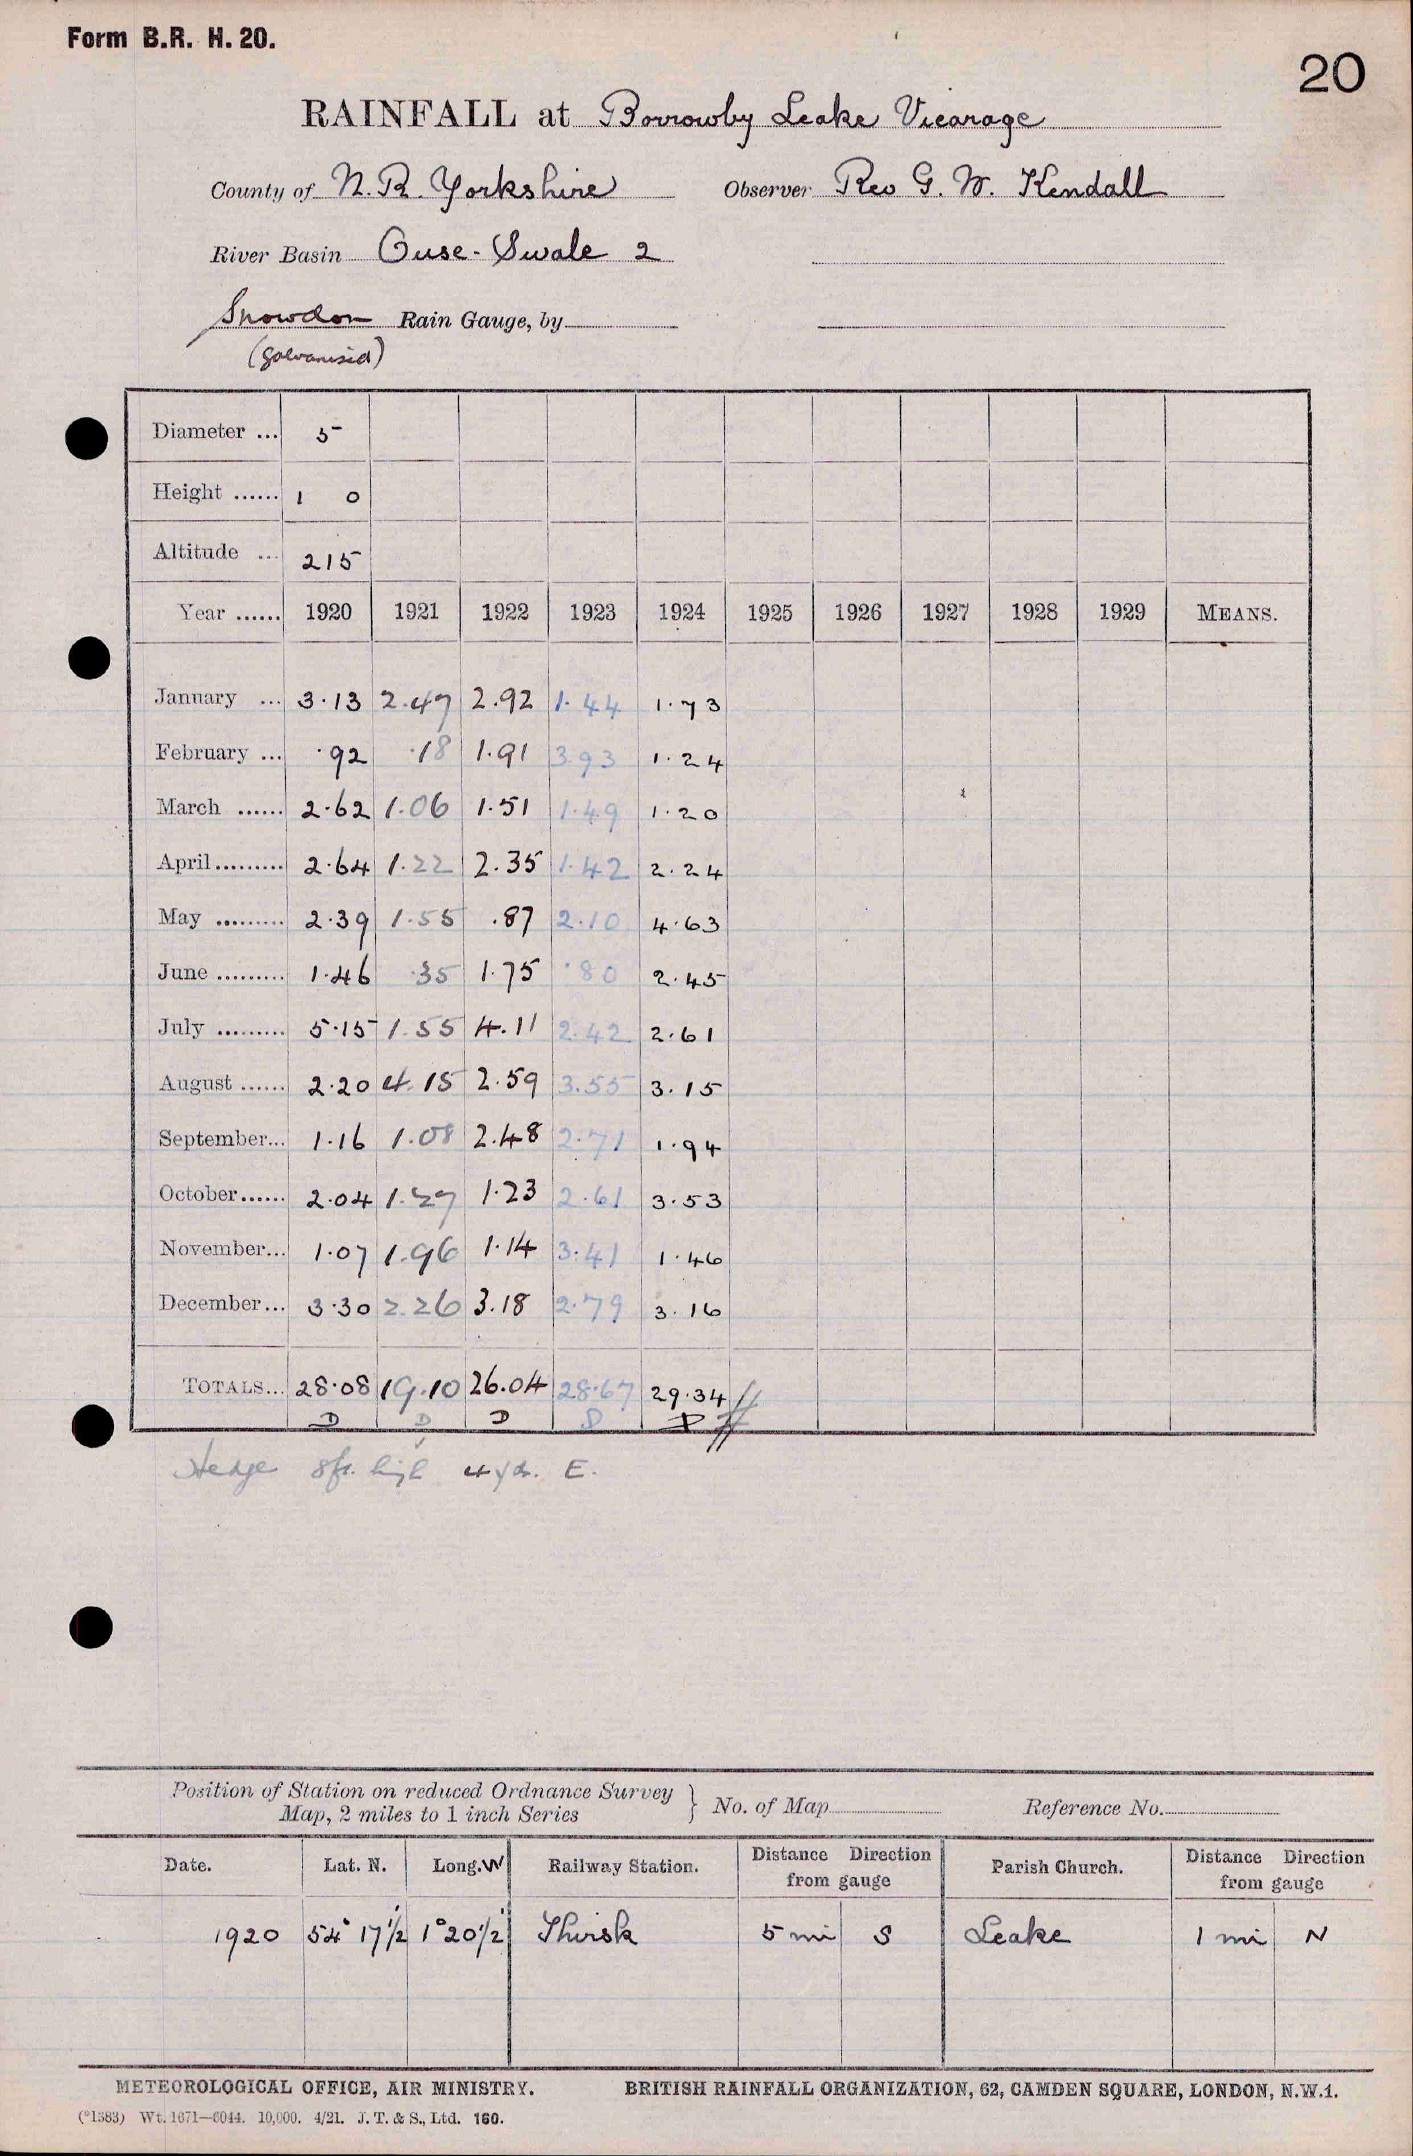 Form B.R. H. 20.
20
RAINFALL at Borrowby Leake Vicarage
County of N. R. Yorkshire Observer Rev G. W. Kendall
River Basin Ouse - Swale 2
Snowdon Rain Gauge, by
(galvanised)
Diameter ... 5
Height ...... 1 0
Altitude ... 215
Year ...... 1920 1921 1922 1923 1924 1925 1926 1927 1928 1929 MEANS.
January ... 3.13 2.47 2.92 1.44 1.73
February ... .92 .18 1.91 3.93 1.24
March ...... 2.62 1.06 1.51 1.49 1.20
April ......... 2.64 1.22 2.35 1.42 2.24
May ......... 2.39 1.55 .87 2.10 4.63
June ......... 1.46 .35 1.75 .80 2.45
July ......... 5.15 1.55 4.11 2.42 2.61
August ...... 2.20 4.15 2.59 3.55 3.15
September... 1.16 1.08 2.48 2.71 1.94
October...... 2.04 1.27 1.23 2.61 3.53
November... 1.07 1.96 1.14 3.41 1.46
December... 3.30 2.26 3.18 2.79 3.16
TOTALS... 28.08 19.10 26.04 28.67 29.34
D D D D D
Hedge 8ft. high 4 yds. E.
Position of Station on reduced Ordnance Survey
Map, 2 miles to 1 inch Series } No. of Map Reference No.
Date. Lat. N. Long. W Railway Station. Distance Direction from gauge Parish Church. Distance Direction from gauge
1920 54° 17½' 1° 20½' Thirsk 5 mi S Leake 1 mi N
METEOROLOGICAL OFFICE, AIR MINISTRY. BRITISH RAINFALL ORGANIZATION, 62, CAMDEN SQUARE, LONDON, N.W.1.
(*1383) Wt. 1671—6044. 10,000. 4/21. J. T. & S., Ltd. 160.